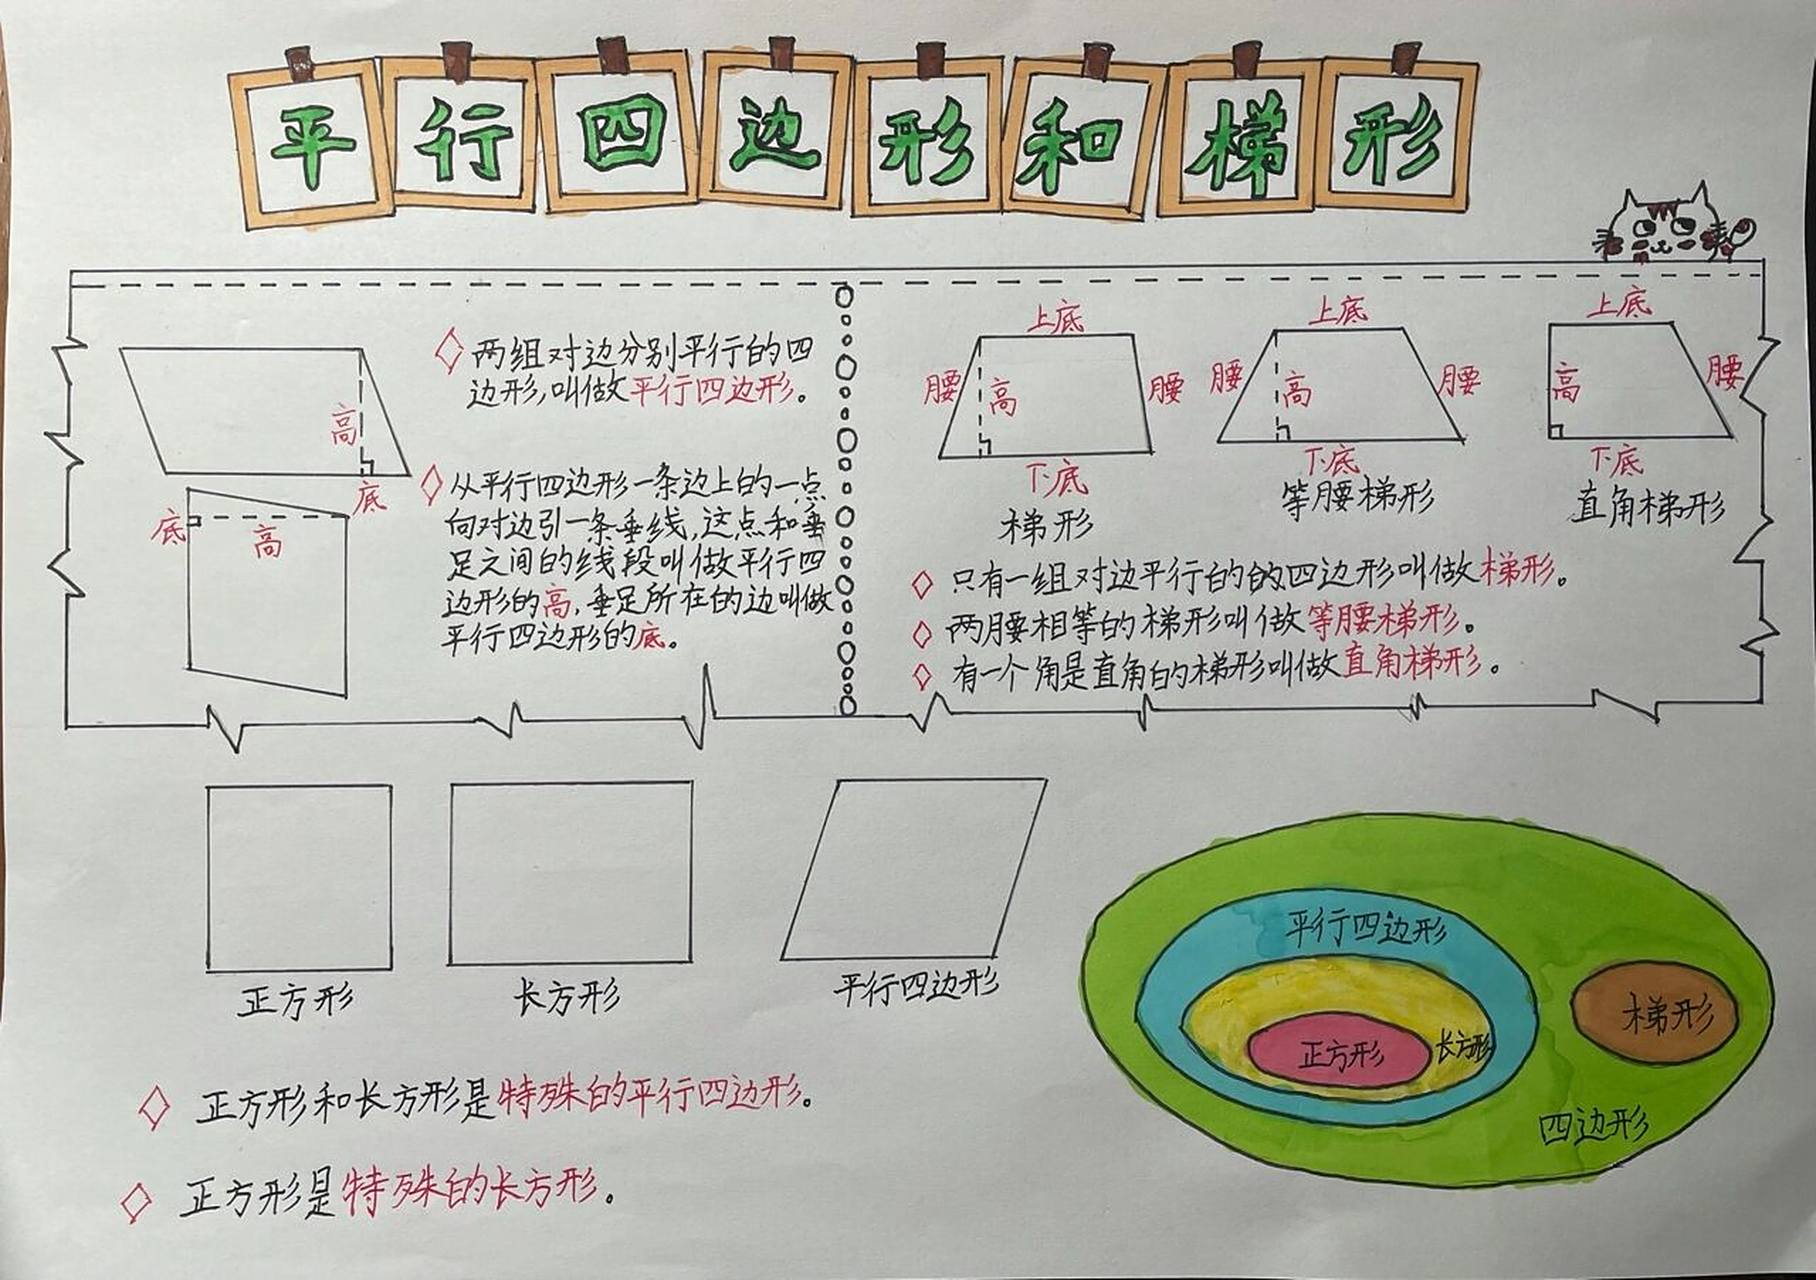 平行四边形和梯形
高
底
底
高
◇两组对边分别平行的四
边形,叫做平行四边形。
◇从平行四边形一条边上的一点
向对边引一条垂线,这点和垂
足之间的线段叫做平行四
边形的高,垂足所在的边叫做
平行四边形的底。
上底 上底 上底
腰 高 腰 腰 高 腰 高 腰
下底 下底 下底
梯形 等腰梯形 直角梯形
◇只有一组对边平行的的四边形叫做梯形。
◇两腰相等的梯形叫做等腰梯形。
◇有一个角是直角的梯形叫做直角梯形。
正方形 长方形 平行四边形
◇正方形和长方形是特殊的平行四边形。
◇正方形是特殊的长方形。
平行四边形
梯形
正方形 长方形
四边形